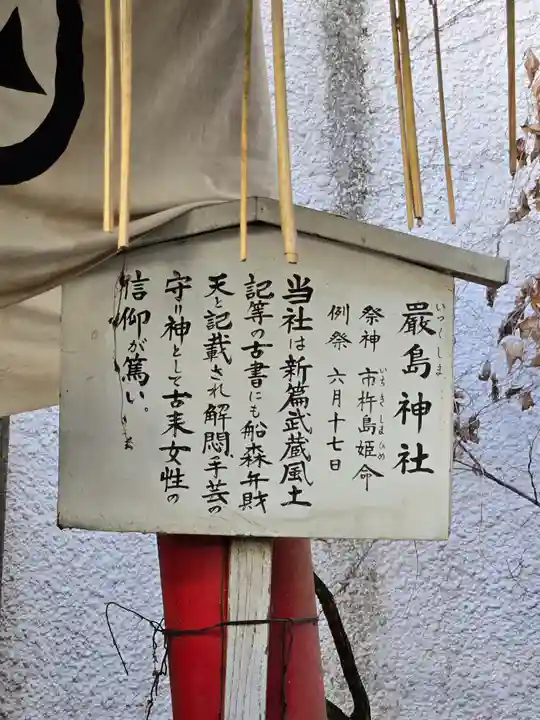 いつくしま
嚴島神社
いちきしまひめ
祭神 市杵島姫命
例祭 六月十七日
当社は新篇武蔵風土
記等の古書にも船森弁財
天と記載され解悶、手芸の
守り神として古来女性の
信仰が篤い。